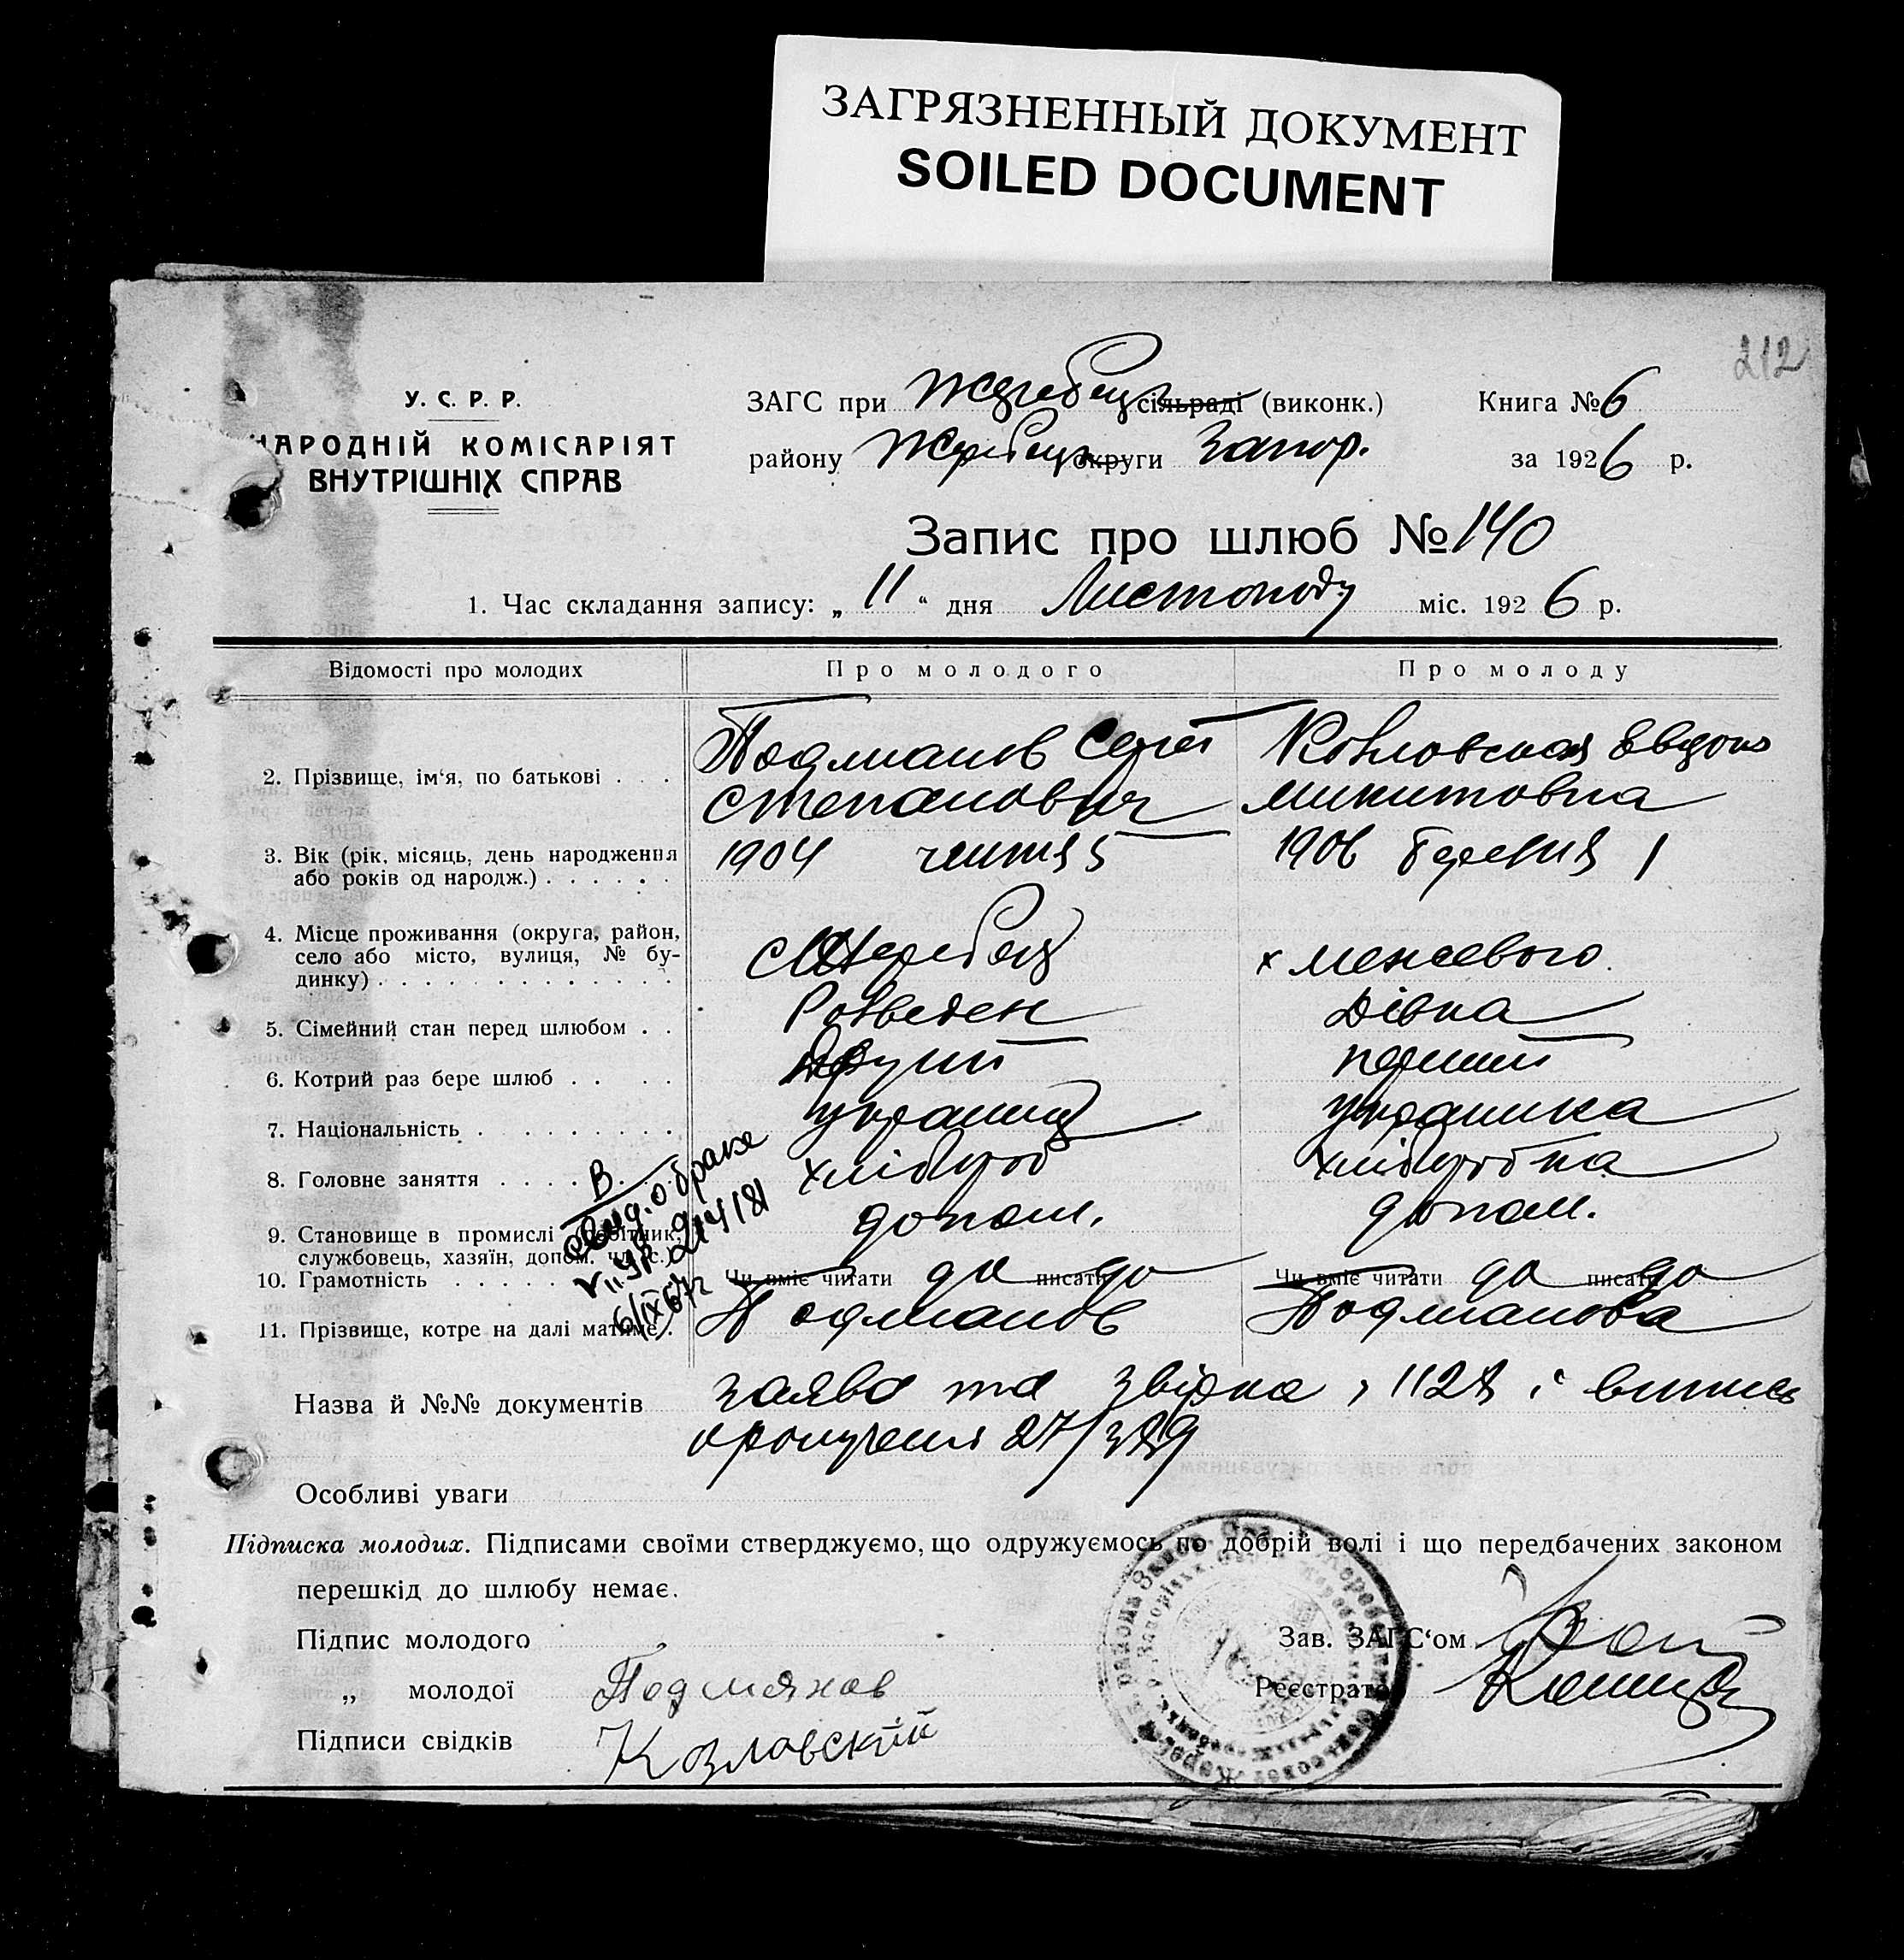 ЗАГРЯЗНЕННЫЙ ДОКУМЕНТ
SOILED DOCUMENT
212
У. С. Р. Р.
НАРОДНІЙ КОМІСАРІЯТ
ВНУТРІШНІХ СПРАВ
ЗАГС при сільраді (виконк.) Книга № 6
району округи Запор. за 1926 р.
Запис про шлюб № 140
1. Час складання запису: „ 11 “ дня Листопаду міс. 1926 р.
Відомості про молодих Про молодого Про молоду
2. Прізвище, ім‘я, по батькові . . .
Подмианов Сергій
Степанович
Козловская
Микитовна
3. Вік (рік, місяць, день народження
або років од народж.) . . . . . .
1904 5
1906 березня 1
4. Місце проживання (округа, район,
село або місто, вулиця, № бу-
динку) . . . . . . . . . . . . .
Жеребець
х Межевого
5. Сімейний стан перед шлюбом . .
Розведен
Дівка
6. Котрий раз бере шлюб . . . .
другий
перший
7. Національність . . . . . . . .
українец
українка
8. Головне заняття . . . .
хлібороб
хліборобка
9. Становище в промислі
службовець, хазяїн, допом.
допом.
допом.
10. Грамотність . . . . .
Чи вміє читати да писати да
Чи вміє читати да писати да
11. Прізвище, котре на далі матиме .
Подмианов
Подмианова
В.
о браке
6/IX 67г
Назва й №№ документів заява та звірка
27/389
Особливі уваги
Підписка молодих. Підписами своїми стверджуємо, що одружуємось по добрій волі і що передбачених законом
перешкід до шлюбу немає.
Підпис молодого
Зав. ЗАГС‘ом
„ молодої Подмянов
Реєстратор
Підписи свідків Козловский